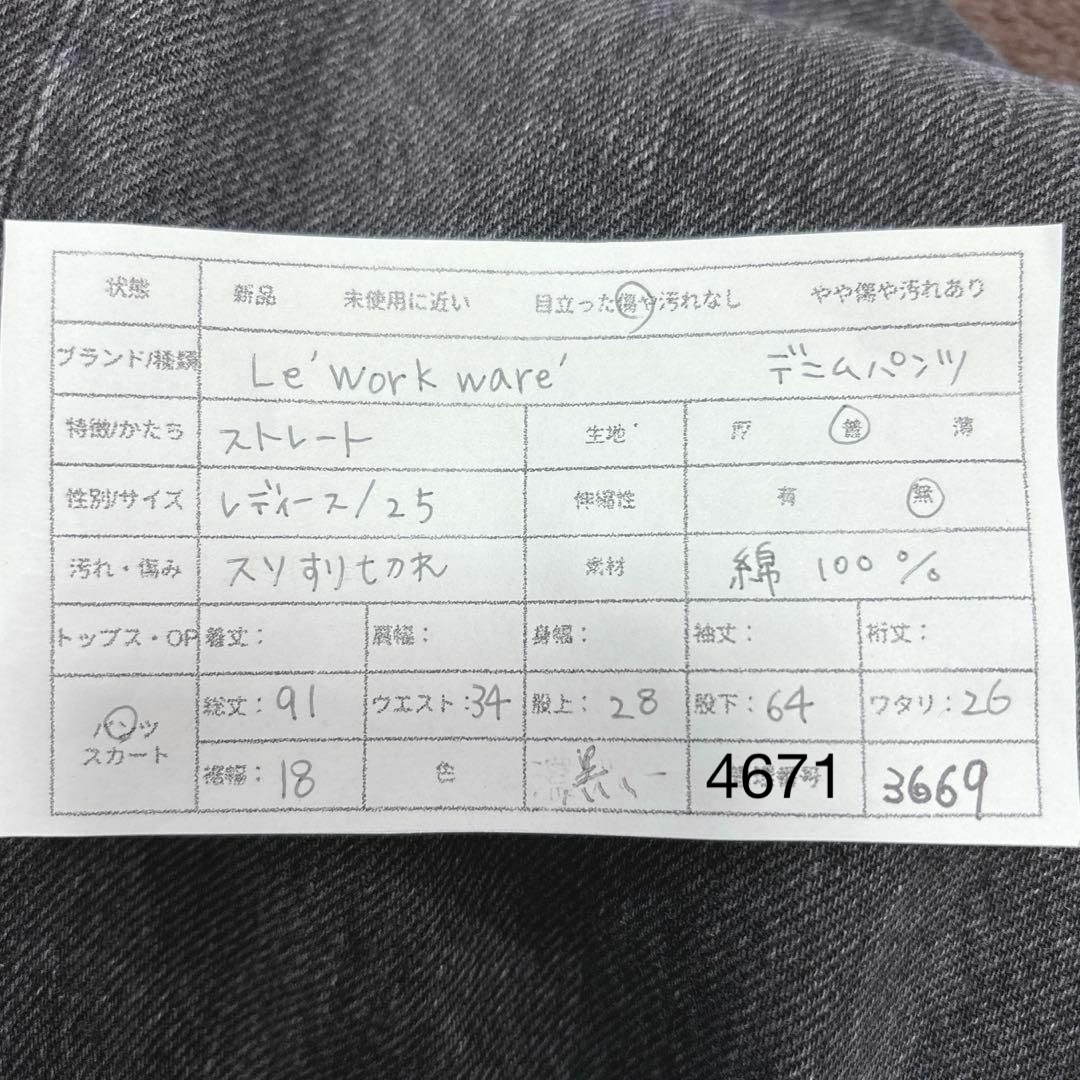 状態 新品 未使用に近い 目立った傷や汚れなし やや傷や汚れあり
ブランド/種類 Le'work ware' デニムパンツ
特徴/かたち ストレート 生地 厚 普 薄
性別/サイズ レディース/25 伸縮性 有 無
汚れ・傷み スソすりせカれ 素材 綿 100%
トップス・OP 着丈: 肩幅: 身幅: 袖丈: 裄丈:
パンツ 総丈:91 ウエスト:34 股上:28 股下:64 ワタリ:26
スカート
裾幅:18 色 4671 3669